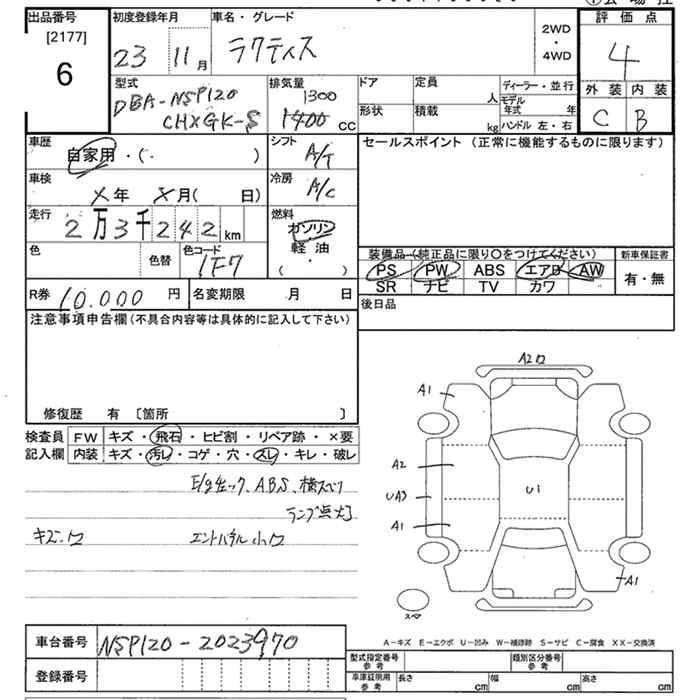 出品番号
[2177]
6
初度登録年月
23 11月
車名・グレード
ラクティス
2WD
・
4WD
評価点
4
外装 内装
C B
型式
DBA-NSP120
CHXGK-S
排気量
1300
1400 cc
ドア
形状
定員 人
積載 kg
ディーラー・並行
モデル年式 年
ハンドル 左・右
車歴
自家用・( )
シフト
A/T
車検
X年 X月( 日)
冷房
A/C
走行
2万3千242km
燃料
ガソリン
軽油
( ・ )
色
色替
色コード
1F7
セールスポイント (正常に機能するものに限ります)
装備品-(純正品に限り○をつけてください)
PS PW ABS エアB AW
SR ナビ TV カワ
新車保証書
有・無
R券 10.000 円
名変期限 月 日
後日品
注意事項申告欄(不具合内容等は具体的に記入して下さい)
修復歴 有 〔箇所 〕
検査員
記入欄
FW キズ・飛石・ヒビ割・リペア跡・×要
内装 キズ・汚レ・コゲ・穴・スレ・キレ・破レ
E/gチェック、ABS、横スベリ
ランプ点灯
キズ・ワ
エントパネル小ワ
A2ワ
A1
A2
UA3
A1
U1
A1
スペア
A-キズ E-エクボ U-凹み W-補修跡 S-サビ C-腐食 XX-交換済
車台番号 NSP120-2023970
登録番号
型式指定番号
参考
類別区分番号
参考
車庫証明用
参考
長さ cm
幅 cm
高さ cm